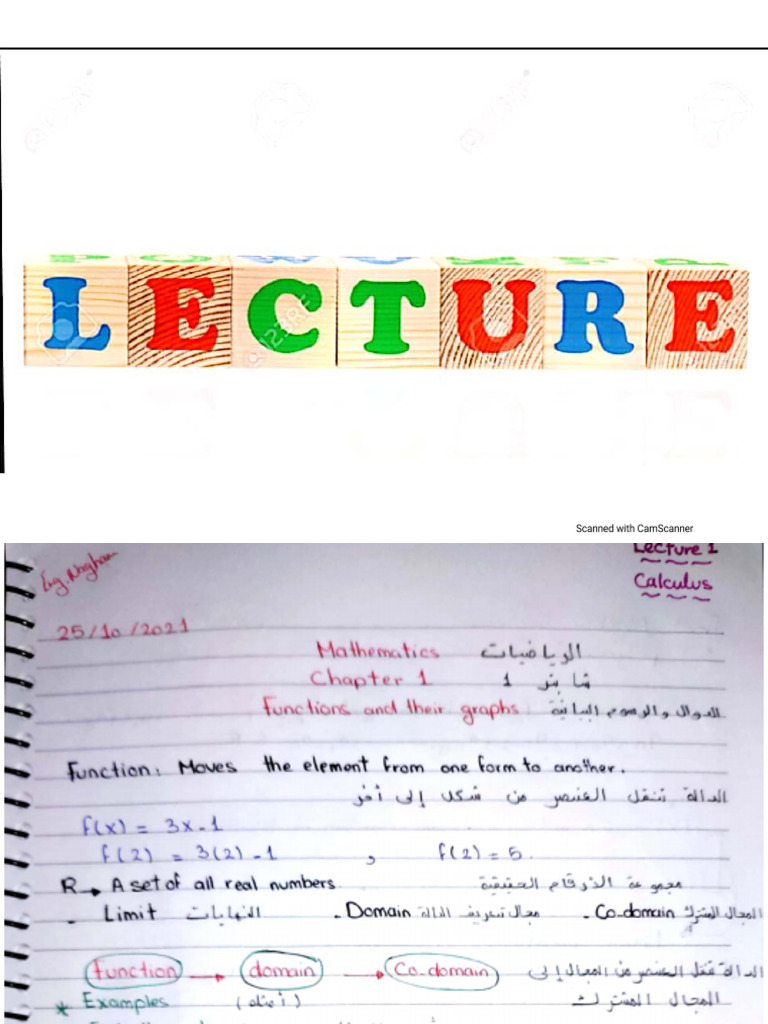 LECTURE
Scanned with CamScanner
Lecture 1
Eng. Nagham
Calculus
25/10/2021
Mathematics الرياضيات
Chapter 1 شابتر 1
Functions and their graphs الدوال والرسوم البيانية
Function: Moves the element from one form to another.
الدالة تنقل العنصر من شكل إلى أخر
f(x) = 3x-1
f(2) = 3(2)-1 , f(2) = 5.
R → A set of all real numbers. مجموعة الأرقام الحقيقية
- Limit النهايات - Domain مجال تعريف الدالة - Co-domain المجال المشترك
function → domain → Co-domain الدالة تنقل العنصر من المجال إلى
* Examples (أمثلة) المجال المشترك